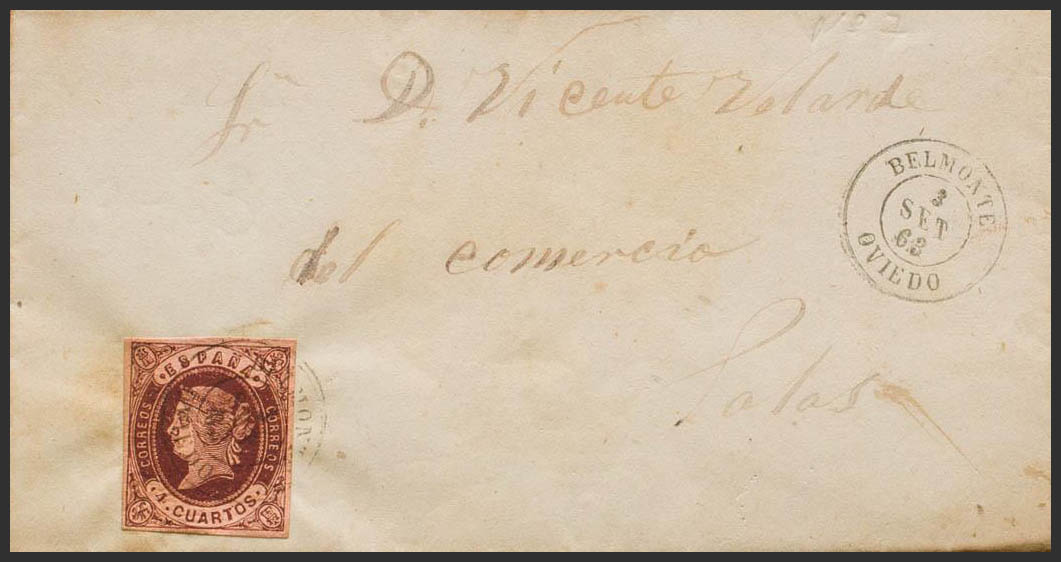 Nº 2
Sr D. Vicente Velarde
BELMONTE
3
SET
62
OVIEDO
del comercio
Salas
ESPAÑA
CORREOS
CORREOS
4 CUARTOS.